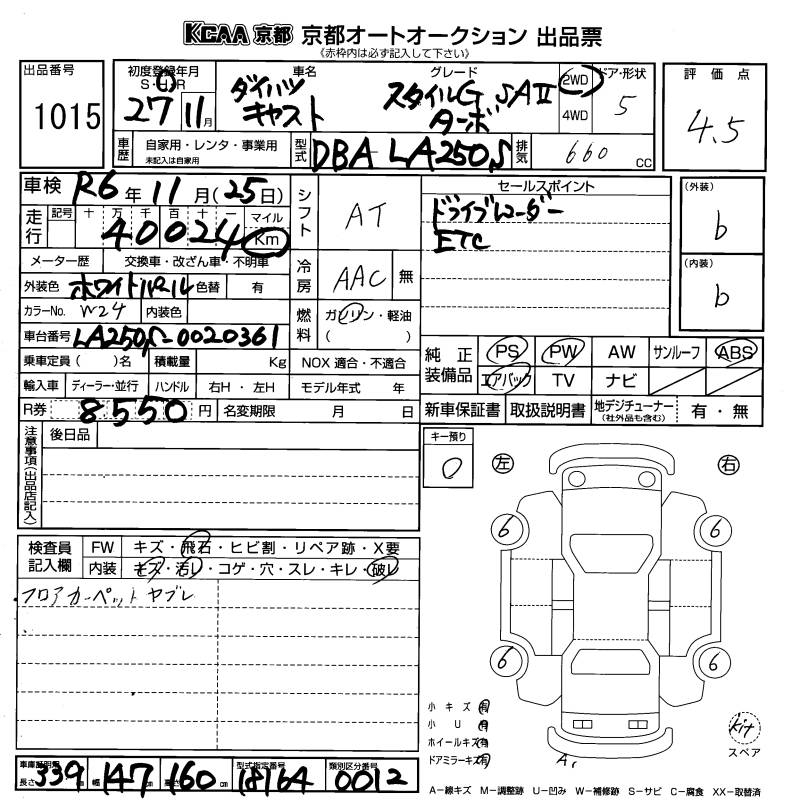 KCAA 京都 京都オートオークション 出品票
《赤枠内は必ず記入して下さい》
出品番号
1015
初度登録年月
S・H・R
27 11月
車名
ダイハツ
キャスト
グレード
スタイルG SAⅡ
ターボ
2WD
4WD
ドア・形状
5
評価点
4.5
車歴
自家用・レンタ・事業用
未記入は自家用
型式
DBA LA250S
排気
660 CC
車検 R6年 11月(25日)
走行
記号 十 万 千 百 十 一 マイル
40024 Km
メーター歴 交換車・改ざん車・不明車
外装色 ホワイトパール 色替 有
カラーNo. W24 内装色
車台番号 LA250S-0020361
乗車定員( )名 積載量 Kg
輸入車 ディーラー・並行 ハンドル 右H・左H
R券 8550円 名変期限 月 日
シフト AT
冷房 AAC 無
燃料 ガソリン・軽油
( )
NOX 適合・不適合
モデル年式 年
セールスポイント
ドライブレコーダー
ETC
(外装)
b
(内装)
b
純正装備品
PS PW AW サンルーフ ABS
エアバック TV ナビ
新車保証書 取扱説明書 地デジチューナー
(社外品も含む)
有・無
注意事項(出品店記入)
後日品
キー預り
0
左 右
6 6
6 6
検査員記入欄
FW キズ・飛石・ヒビ割・リペア跡・X要
内装 キズ・汚れ・コゲ・穴・スレ・キレ・破れ
フロアカーペットヤブレ
小キズ 有
小U 有
ホイールキズ 有
ドアミラーキズ 有
A1
Kit
スペア
長さ 339cm 幅 147cm 高さ 160cm
型式指定番号
18164
類別区分番号
0012
A－線キズ M－調整跡 U－凹み W－補修跡 S－サビ C－腐食 XX－取替済